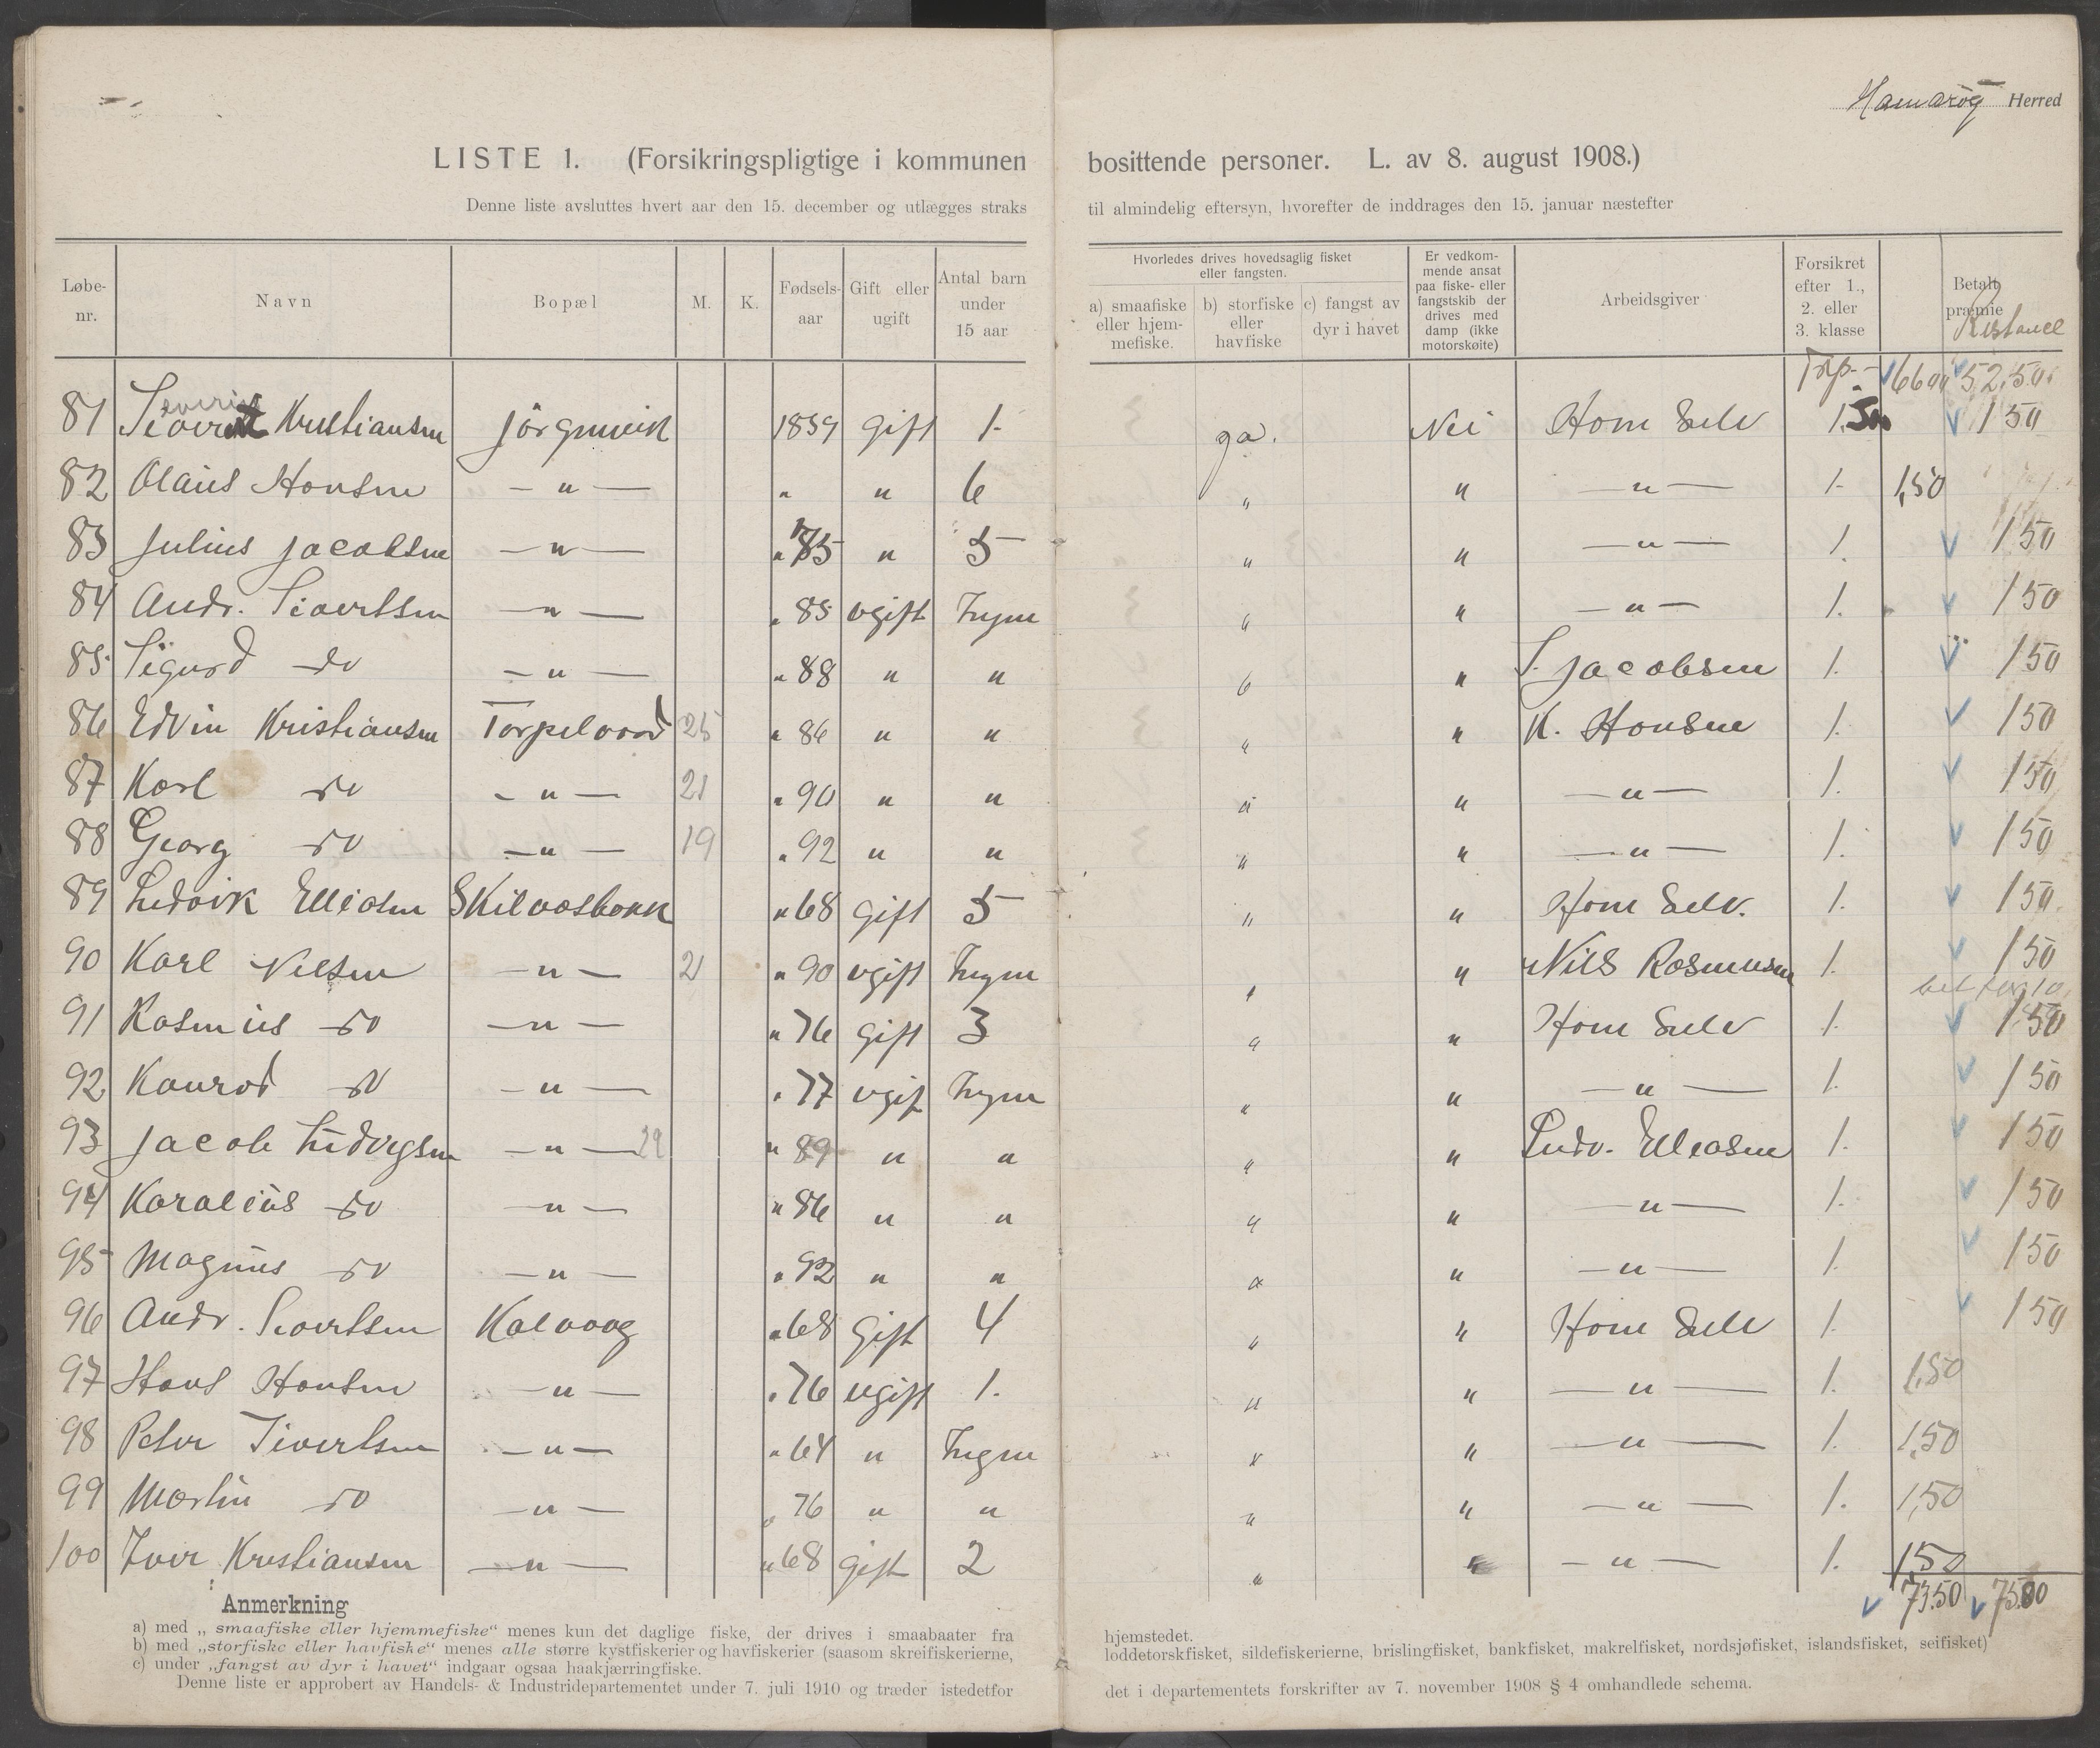 Hamarøy Herred
LISTE 1. (Forsikringspligtige i kommunen bosittende personer. L. av 8. august 1908.)
Denne liste avsluttes hvert aar den 15. december og utlægges straks til almindelig eftersyn, hvorefter de inddrages den 15. januar næstefter
Løbe-nr. Navn Bopæl M. K. Fødsels-aar Gift eller ugift Antal barn under 15 aar Hvorledes drives hovedsaglig fisket eller fangsten. a) smaafiske eller hjem-mefiske. b) storfiske eller havfiske c) fangst av dyr i havet Er vedkom-mende ansat paa fiske- eller fangstskib der drives med damp (ikke motorskøite) Arbeidsgiver Forsikret efter 1., 2. eller 3. klasse Betalt præmie Restance
Trp. 66 00 52,50
81 Kristiansen 1859 gift 1. ja. Nei Ham Selv 1. 1 50
82 Olaus Hansen — " — " " 6 " " — " — 1. 1,50
83 Julius Jacobsen — " — " 75 " 5 " " — " — 1. 1 50
84 Andr. Sivertsen — " — " 85 ugift Ingen " " — " — 1. 1 50
85 Sigurd do — " — " 88 " " " " S. Jacobsen 1. 1 50
86 Edvin Kristiansen 25 " 86 " " " " K. Hansen 1. 1 50
87 Karl do — " — 21 " 90 " " " " — " — 1. 1 50
88 Georg do — " — 19 " 92 " " " " — " — 1. 1 50
89 Ludvik Elliasen Skilvasbakk " 68 gift 5 " " Ham Selv. 1. 1 50
90 Karl Nilsen — " — 21 " 90 ugift Ingen " " Nils Rasmusen 1. 1 50
91 Rasmus do — " — " 76 gift 3 " " Ham Selv 1. 1 50
92 Konrad do — " — " 77 ugif Ingen " " — " — 1. 1 50
93 Jacob Ludvigsen — " — " 89 " " " " Ludv. Elleasen 1. 1 50
94 Karalius do — " — " 86 " " " " — " — 1. 1 50
95 Magnus do — " — " 92 " " " " — " — 1. 1 50
96 Andr. Sivertsen Kalvaag " 68 gift 4 " " Ham Selv 1. 1 50
97 Hans Hansen — " — " 76 ugift 1. " " — " — 1. 1,50
98 Peter Sivertsen — " — " 64 " Ingen " " — " — 1. 1,50
99 Martin do — " — " 76 " " " " — " — 1. 1,50
100 Iver Kristiansen — " — " 68 gift 2 " " — " — 1. 1,50
73.50 75.00
Anmerkning
a) med „smaafiske eller hjemmefiske“ menes kun det daglige fiske, der drives i smaabaater fra hjemstedet.
b) med „storfiske eller havfiske“ menes alle større kystfiskerier og havfiskerier (saasom skreifiskerierne, loddetorskfisket, sildefiskerierne, brislingfisket, bankfisket, makrelfisket, nordsjøfisket, islandsfisket, seifisket)
c) under „fangst av dyr i havet“ indgaar ogsaa haakjærringfiske.
Denne liste er approbert av Handels- & Industridepartementet under 7. juli 1910 og træder istedetfor det i departementets forskrifter av 7. november 1908 § 4 omhandlede schema.